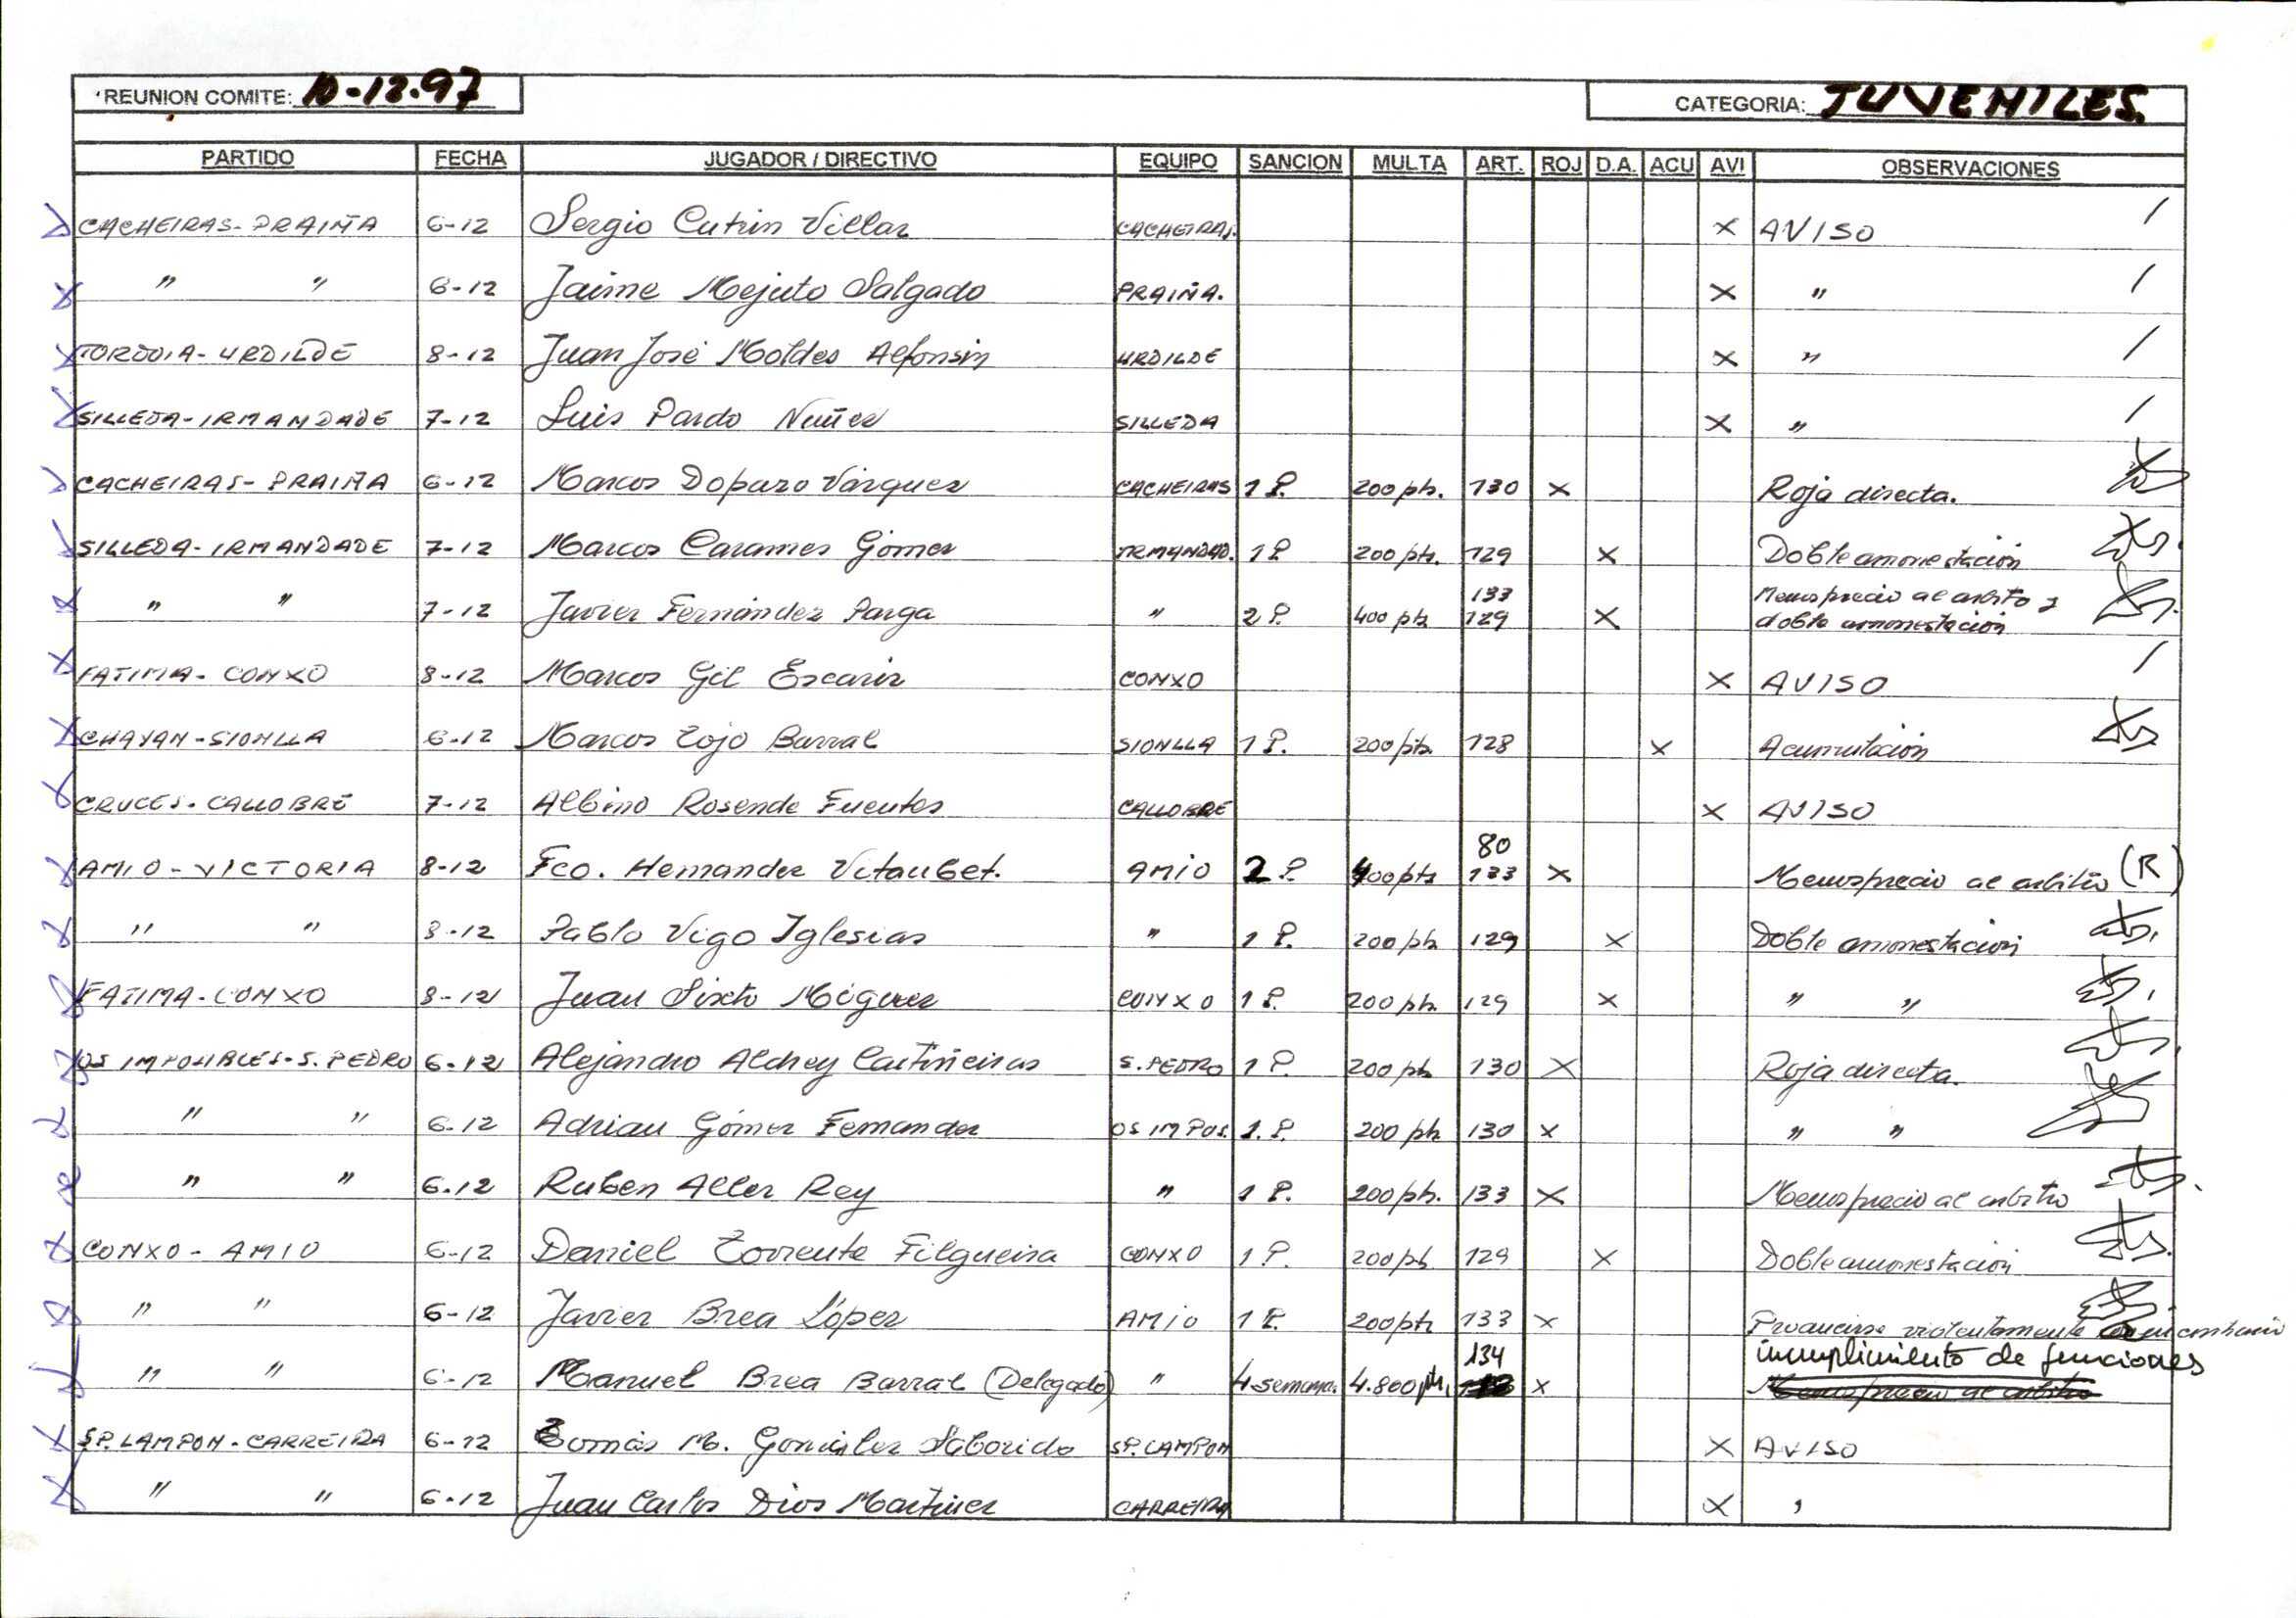 REUNION COMITE: 10-12-97 CATEGORIA: JUVENILES.
PARTIDO FECHA JUGADOR / DIRECTIVO EQUIPO SANCION MULTA ART. ROJ D.A. ACU AVI OBSERVACIONES
CACHEIRAS-PRAIÑA 6-12 Sergio Cutrin Villar CACHEIRAS. X AVISO /
" " 6-12 Jaime Mejuto Salgado PRAIÑA. X " /
TORDOIA-URDILDE 8-12 Juan José Moldes Alfonsin URDILDE X " /
SILLEDA-IRMANDADE 7-12 Luis Pardo Nuñez SILLEDA X " /
CACHEIRAS-PRAIÑA 6-12 Marcos Dopazo Vázquez CACHEIRAS 1 P. 200 pts. 130 X Roja directa.
SILLEDA-IRMANDADE 7-12 Marcos Carames Gómez IRMANDAD. 1 P. 200 pts. 129 X Doble amonestación
" " 7-12 Javier Fernández Parga " 2 P. 400 pts 133 129 X Menosprecio al arbitro y doble amonestación
FATIMA-CONXO 8-12 Marcos Gil Escariz CONXO X AVISO /
CHAYAN-SIONLLA 6-12 Marcos Tojo Barral SIONLLA 1 P. 200 pts 128 X Acumulación
CRUCES-CALLOBRE 7-12 Albino Rosende Fuentes CALLOBRE X AVISO
AMIO-VICTORIA 8-12 Fco. Hernandez AMIO 2 P. 400 pts 80 133 X Menosprecio al arbitro (R)
" " 8-12 Pablo Vigo Iglesias " 1 P. 200 pts 129 X Doble amonestación
FATIMA-CONXO 8-12 Juan Sixto Miguez CONXO 1 P. 200 pts. 129 X " "
OS IMPOSIBLES-S.PEDRO 6-12 Alejandro Aldrey Castiñeiras S.PEDRO 1 P. 200 pts 130 X Roja directa.
" " 6-12 Adrian Gómez Fernandez OS IMPOS. 1. P. 200 pts 130 X " "
" " 6-12 Ruben Aller Rey " 1 P. 200 pts. 133 X Menosprecio al arbitro
CONXO-AMIO 6-12 Daniel Torrente Filgueira CONXO 1 P. 200 pts 129 X Doble amonestación
" " 6-12 Javier Brea López AMIO 1 P. 200 pts 133 X violentamente
" " 6-12 Manuel Brea Barral (Delegado) " 4 semanas. 4.800 pts. 134 X incumplimiento de funciones
SP.LAMPON-CARREIRA 6-12 Tomás M. González Saborido SP.LAMPON X AVISO
" " 6-12 Juan Carlos Dios Martinez CARREIRA X "